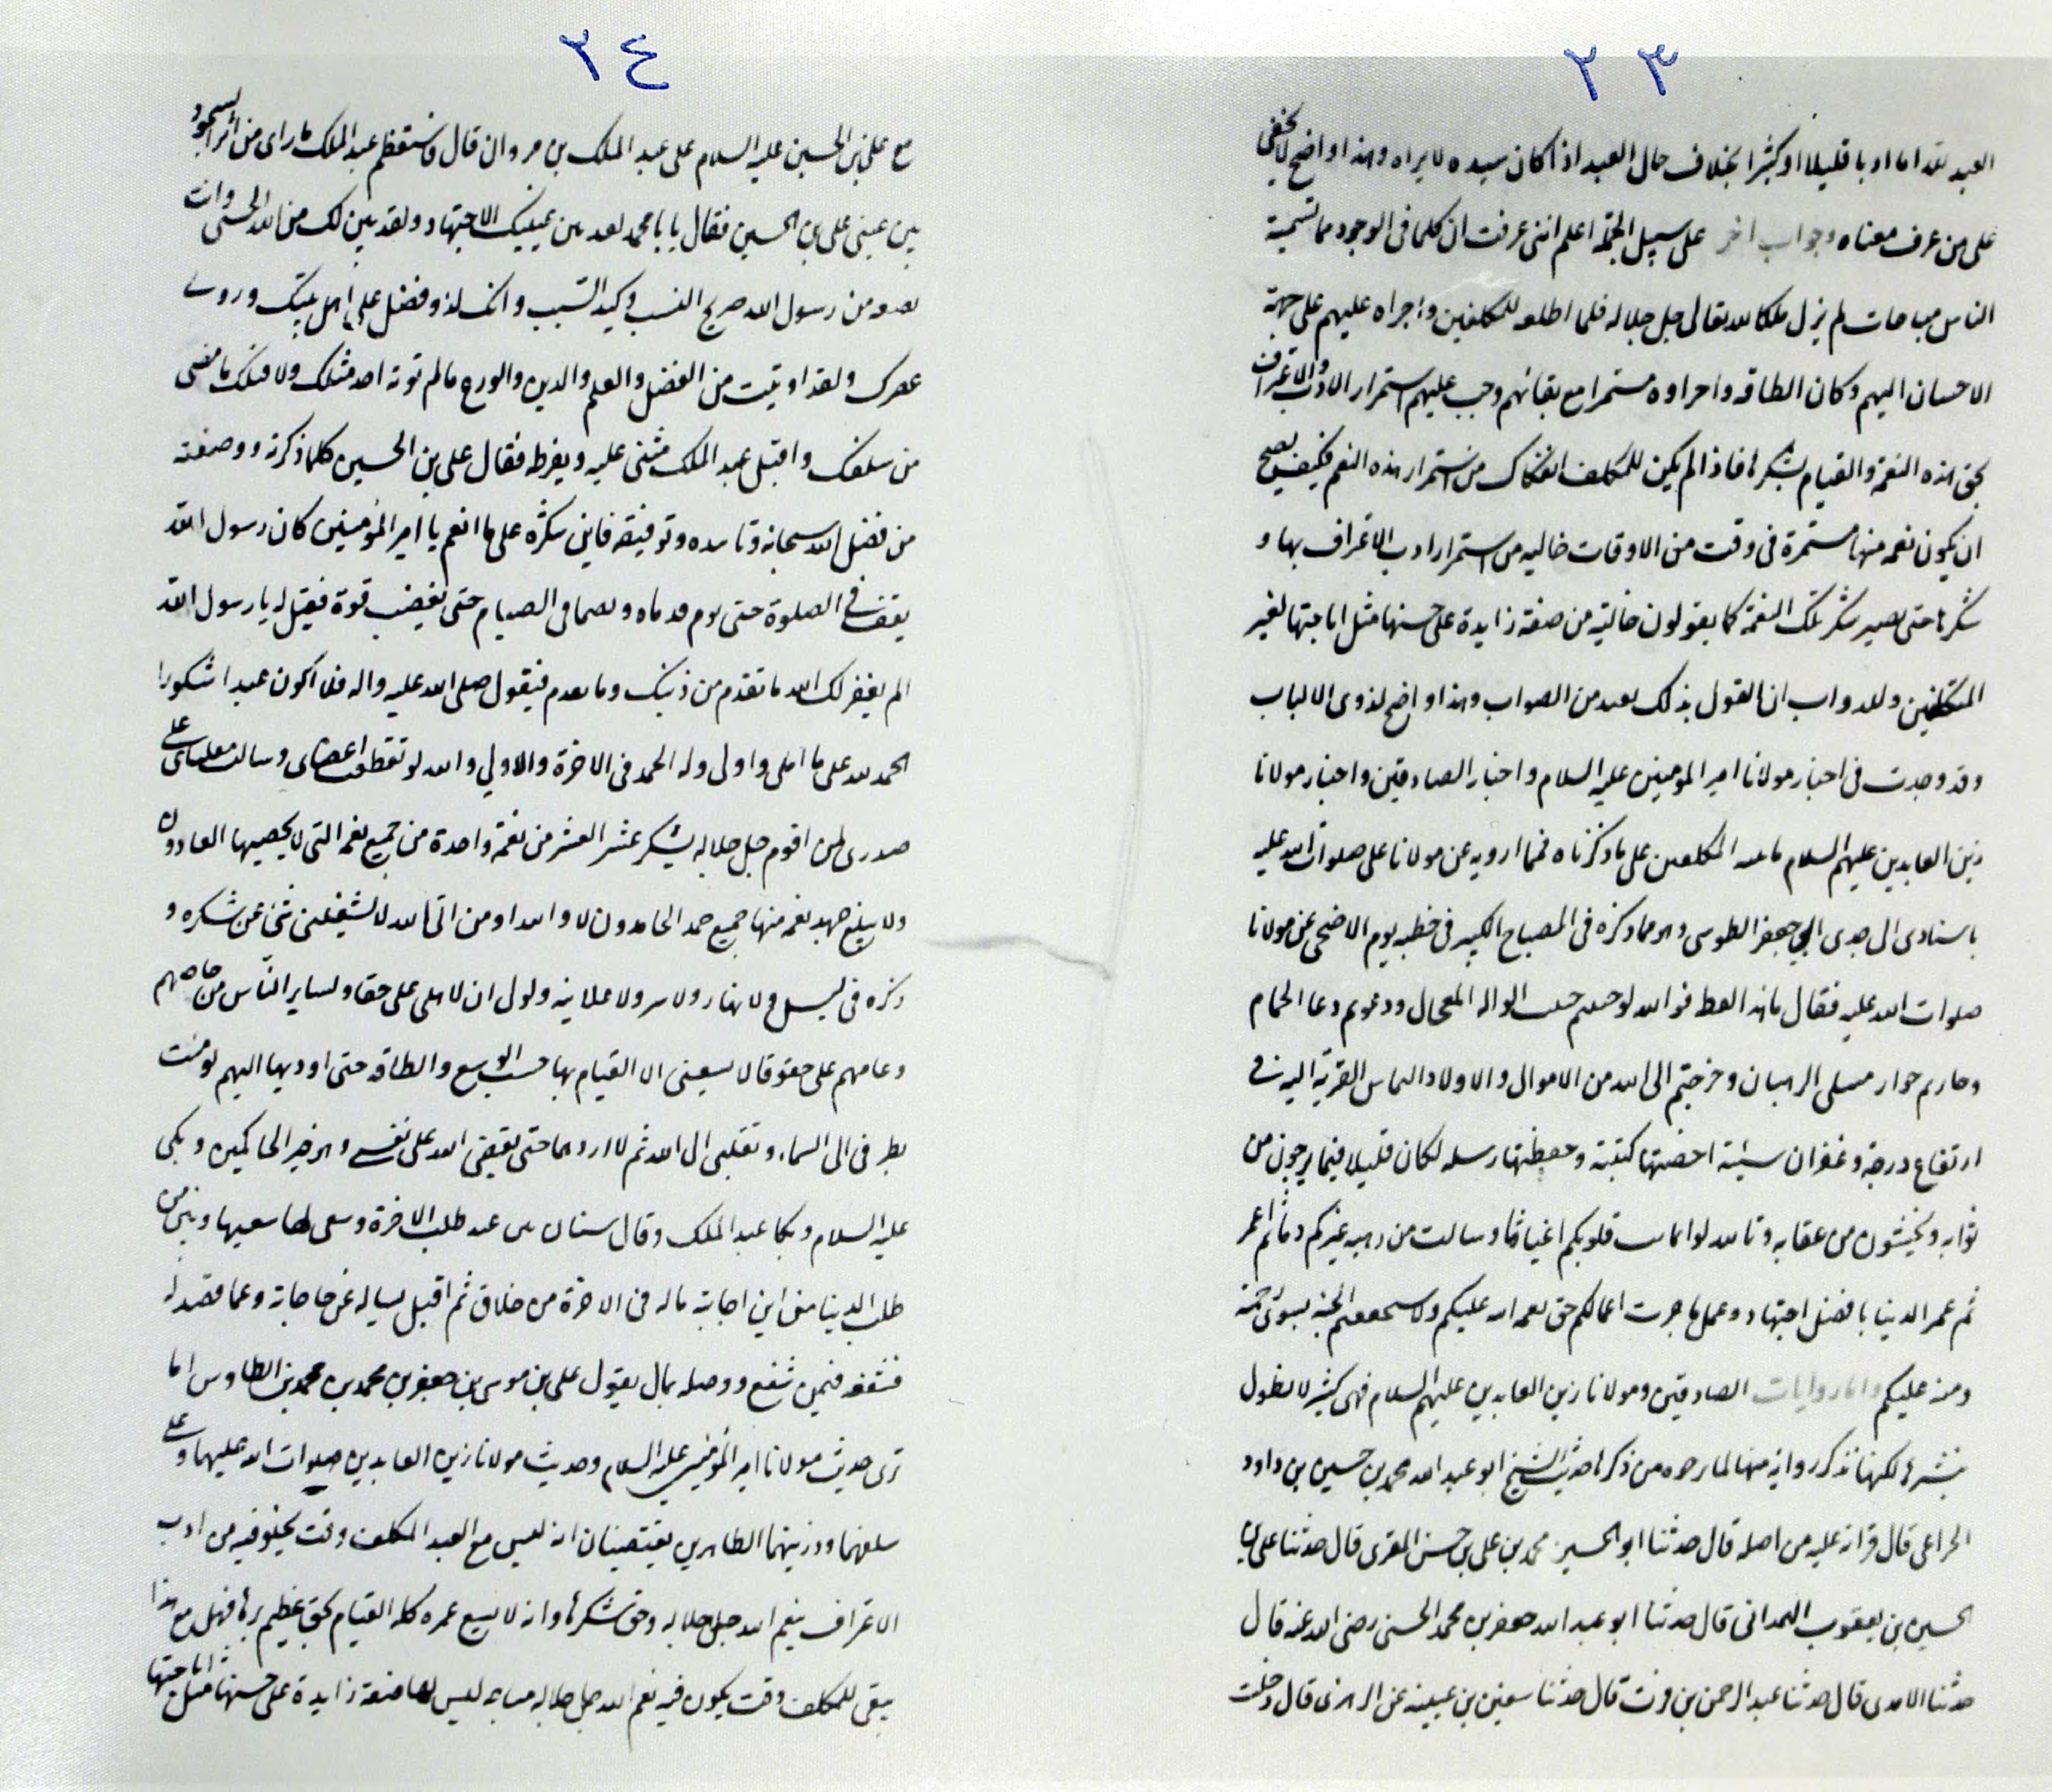 ٢٣
العبد لله اما ادبا قليلا او كثيرا بخلاف حال العبد اذا كان سيده لا يراه وهذا واضح لا يخفى
على من عرف معناه وجواب اخر على سبيل الجملة اعلم انني عرفت ان كلما في الوجود مما تسميه
الناس مباحات لم يزل ملكا لله تعالى جل جلاله فلما اطلعه للمكلفين واجراه عليهم على جهة
الاحسان اليهم وكان اطلاقه واجراوه مستمرا مع بقائهم وجب عليهم استمرار الادب والاعتراف
بحق هذه النعمة والقيام بشكرها فاذا لم يكن للمكلف انفكاك من استمرار هذه النعم فكيف يصح
ان يكون نعمه منها مستمرة في وقت من الاوقات خاليه من استمرار ادب الاعتراف بها و
شكرها حتى يصير شكر تلك النعمة كما يقولون خالية من صفة زايدة على حسنها مثل اباحتها لغير
المكلفين وللدواب ان القول بذلك بعيد من الصواب وهذا واضح لذوي الالباب
وقد وجدت في اخبار مولانا امير المومنين عليه السلام واخبار الصادقين واخبار مولانا
زين العابدين عليهم السلام المكلفين على ما ذكرناه فمما ارويه عن مولانا علي صلوات الله عليه
باسنادي الى جدي ابي جعفر الطوسي وهو مما ذكره في المصباح الكبير في خطبه يوم الاضحى عن مولانا
صلوات الله عليه فقال ما هذا لفظه فوالله لو حننتم حنين الواله المعجال ودعوتم دعا الحمام
وجارتم جوار متبتلي الرهبان وخرجتم الى الله من الاموال والاولاد التماس القربة اليه في
ارتفاع درجة وغفران سيئة احصتها كتبته وحفظتها رسله لكان قليلا فيما يرجون من
ثوابه ويخشون من عقابه وتالله لو انماثت قلوبكم انمياثا وسالت من رهبه عيونكم دما ثم
ثم عمر الدنيا بافضل اجتهاد وعمل ما جزت اعمالكم حق نعمه الله عليكم ولا استحققتم الجنة بسوى رحمة
ومنه عليكم واما روايات الصادقين ومولانا زين العابدين عليهم السلام فهي كثير لا نطول
بنشرها لكننا نذكر رواية منها لما رجوه من ذكرها حدث الشيخ ابو عبد الله محمد بن حسين بن داود
الخزاعي قال قراة عليه من اصله قال حدثنا ابو الحسين محمد بن علي بن حسن المقري قال حدثنا علي بن
الحسين بن يعقوب الهمداني قال حدثنا ابو عبد الله جعفر بن محمد الحسني رضي الله عنه قال
حدثنا الامدي قال حدثنا عبد الرحمن بن قال حدثنا سفين بن عيينه عن الزهري قال دخلت
٢٤
مع علي بن الحسين عليه السلام على عبد الملك بن مروان قال فاستعظم عبد الملك ما راى من اثر السجود
بين عيني علي بن الحسين فقال يا با محمد لقد بين عينيك الاجتهاد ولقد سبق لك من الله الحسنى وانت
بضعه من رسول الله صريح النسب وكيد السبب وانك لذو فضل على اهل بيتك وذوي
عصرك ولقد اوتيت من الفضل والعلم والدين والورع ما لم توته احد مثلك ولا قبلك ما مضى
من سلفك واقبل عبد الملك يثني عليه ويقرظه فقال علي بن الحسين كلما ذكرته ووصفته
من فضل الله سبحانه وتاييده وتوفيقه فاين شكره على ما انعم يا امير المؤمنين كان رسول الله
يقف في الصلوة حتى ترم قدماه ويظما في الصيام حتى يعصب فوه فقيل له يا رسول الله
الم يغفر لك الله ما تقدم من ذنبك وما تقدم فيقول صلى الله عليه واله فلا اكون عبدا شكورا
الحمد لله على ما ابلى واولى وله الحمد في الاخرة والاولي والله لو تقطعت اعضاي وسالت مقلتاي على
صدري لن اقوم جل جلاله بشكر عشر العشر من نعمة واحدة من جميع نعمه التي لا يحصيها العادون
ولا يبلغ حد نعمه منها جميع حمد الحامدون لا والله او من اتى الله لا يشغلني شئ عن شكره و
ذكره في ليل ولا نهار ولا سر ولا علانيه ولولا ان لاهلي علي حقا ولساير الناس من خاصهم
وعامهم علي حقوقا لا يسعني الا القيام بها حسب الوسع والطاقة حتى اوديها اليهم لرميت
بطرفي الى السماء وبقلبي الى الله ثم لا اردهما حتى يقضي الله على نفسي وهو خير الحاكمين وبكى
عليه السلام وبكا عبد الملك وقال شتان بين عبد طلب الاخرة وسعى لها سعيها وبين من
طلب الدنيا من اين اجابته ماله في الاخرة من خلاق ثم اقبل يساله عن حاجاته وعما قصد له
فشفعه فيمن شفع ووصله بمال يقول علي بن موسى بن جعفر بن محمد بن محمد بن الطاوس اما
ترى حديث مولانا امير المؤمنين عليه السلام وحديث مولانا زين العابدين صلوات الله عليهما وعلى
سلفهما وذريتهما الطاهرين يقتضيان انه ليس مع العبد المكلف وقت يخلو فيه من ادب
الاعتراف بنعم الله جل جلاله وحق شكرها وانه لا يسع عمره كله القيام بحق عظيم برها فهل مع هذا
يبقى للمكلف وقت يكون فيه نعم الله جل جلاله مباحه ليس لها صفة زايدة على حسنها مثل اباحتها